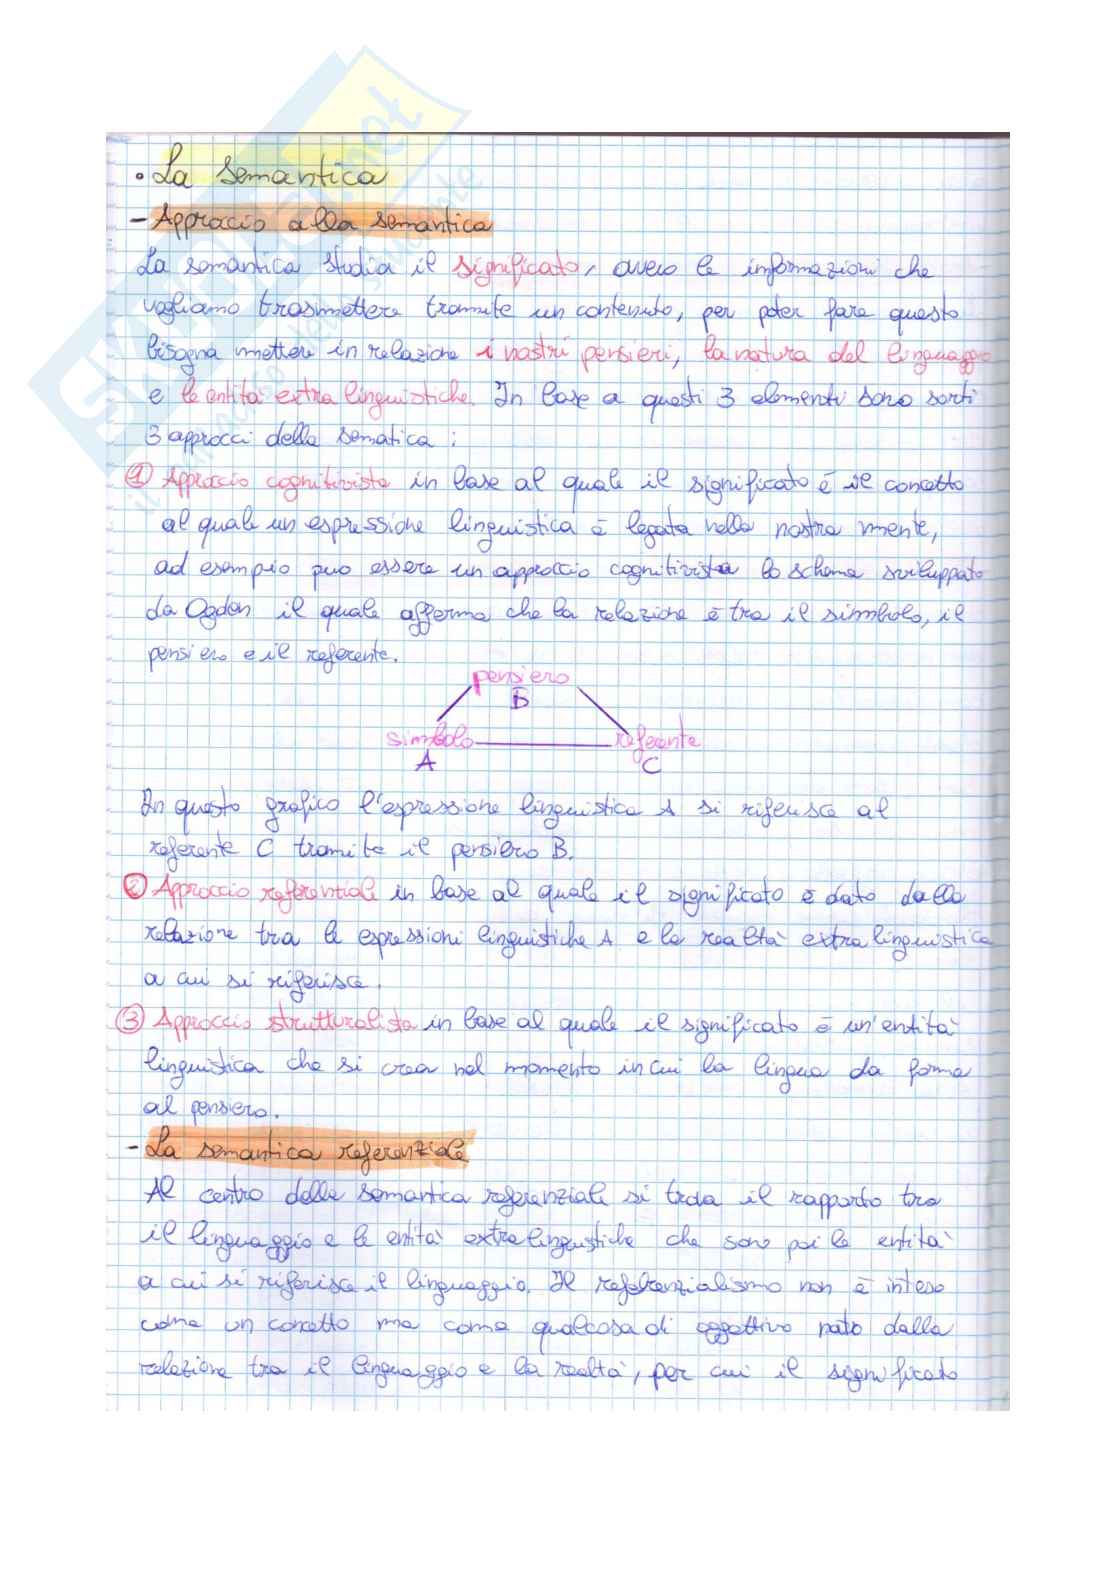 • La semantica
- Approccio alla semantica
La semantica studia il significato, ovvero le informazioni che
vogliamo trasmettere tramite un contenuto, per poter fare questo
bisogna mettere in relazione i nostri pensieri, la natura del linguaggio
e le entità extra linguistiche. In base a questi 3 elementi sono sorti
3 approcci della sematica :
① Approccio cognitivista in base al quale il significato è il concetto
al quale un espressione linguistica è legata nella nostra mente,
ad esempio può essere un approccio cognitivista lo schema sviluppato
da Ogden il quale afferma che la relazione è tra il simbolo, il
pensiero e il referente.
pensiero
B
simbolo referente
A C
In questo grafico l'espressione linguistica A si riferisce al
referente C tramite il pensiero B.
② Approccio referenziale in base al quale il significato è dato dalla
relazione tra le espressioni linguistiche A e la realtà extra linguistica
a cui si riferisce.
③ Approccio strutturalista in base al quale il significato è un'entità
linguistica che si crea nel momento in cui la lingua da forma
al pensiero.
- La semantica referenziale
Al centro della semantica referenziale si trova il rapporto tra
il linguaggio e le entità extra linguistiche che sono poi le entità
a cui si riferisce il linguaggio. Il referenzialismo non è inteso
come un concetto ma come qualcosa di oggettivo nato dalla
relazione tra il linguaggio e la realtà, per cui il significato